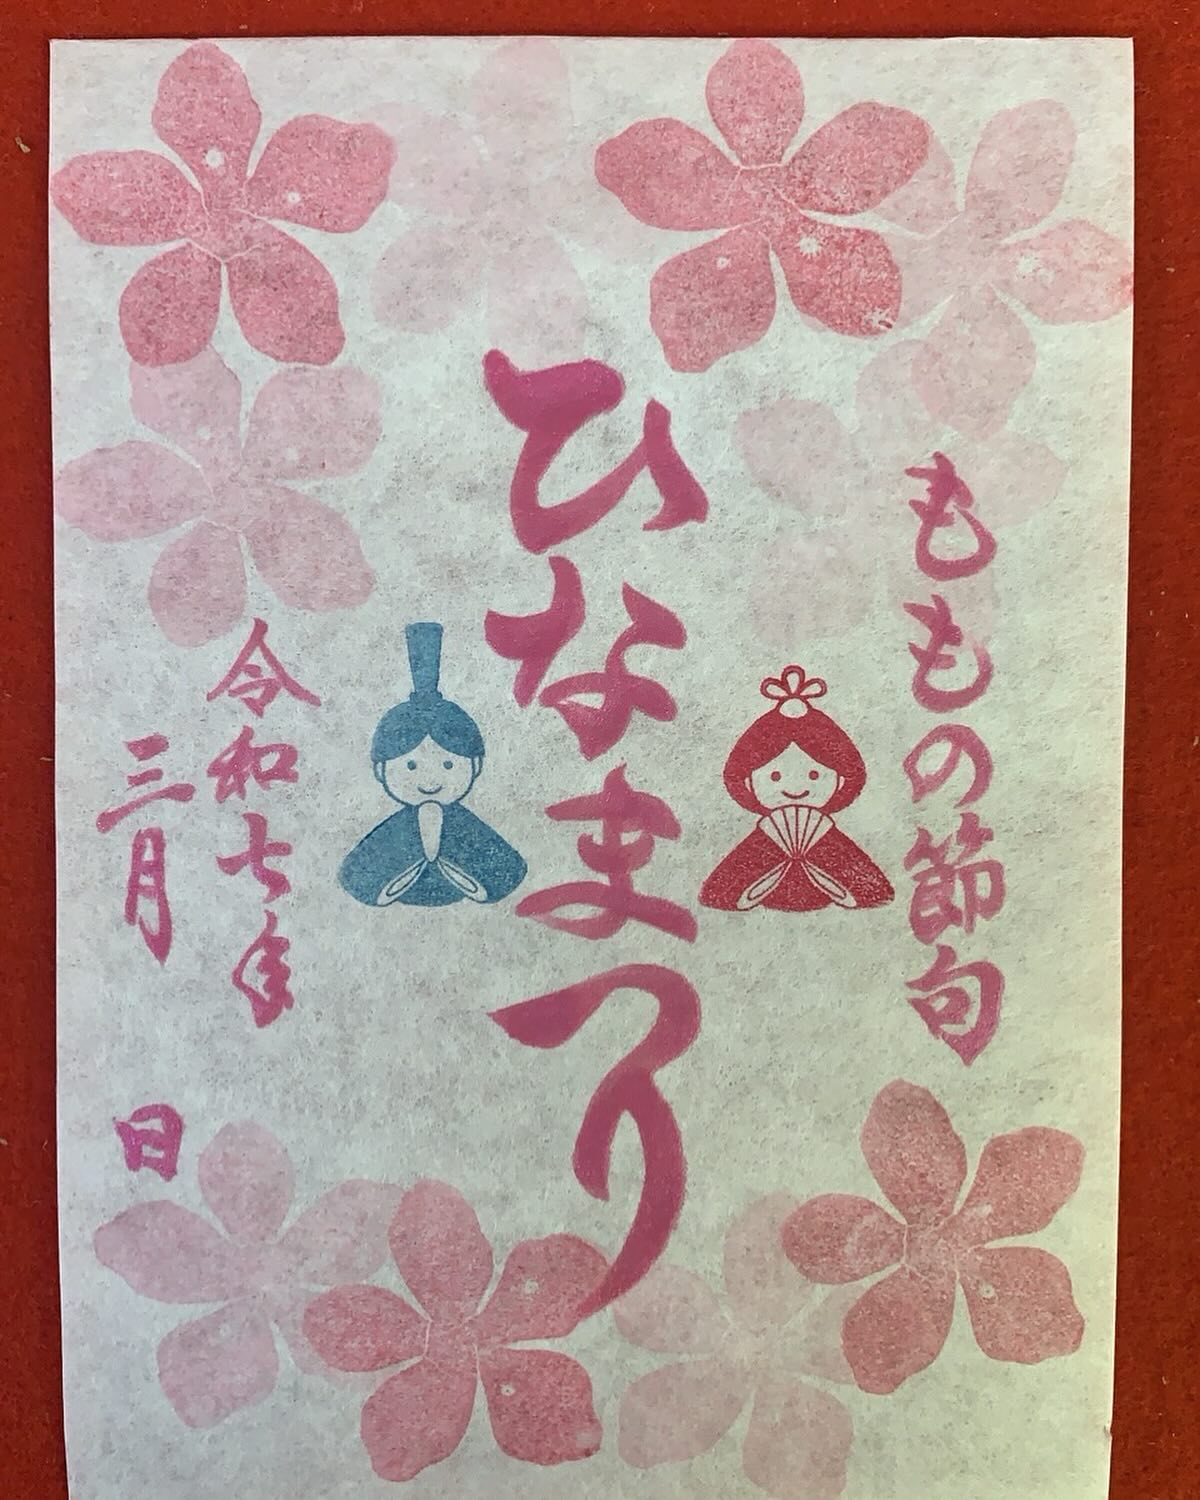 ももの節句
ひなまつり
令和七年
三月 日